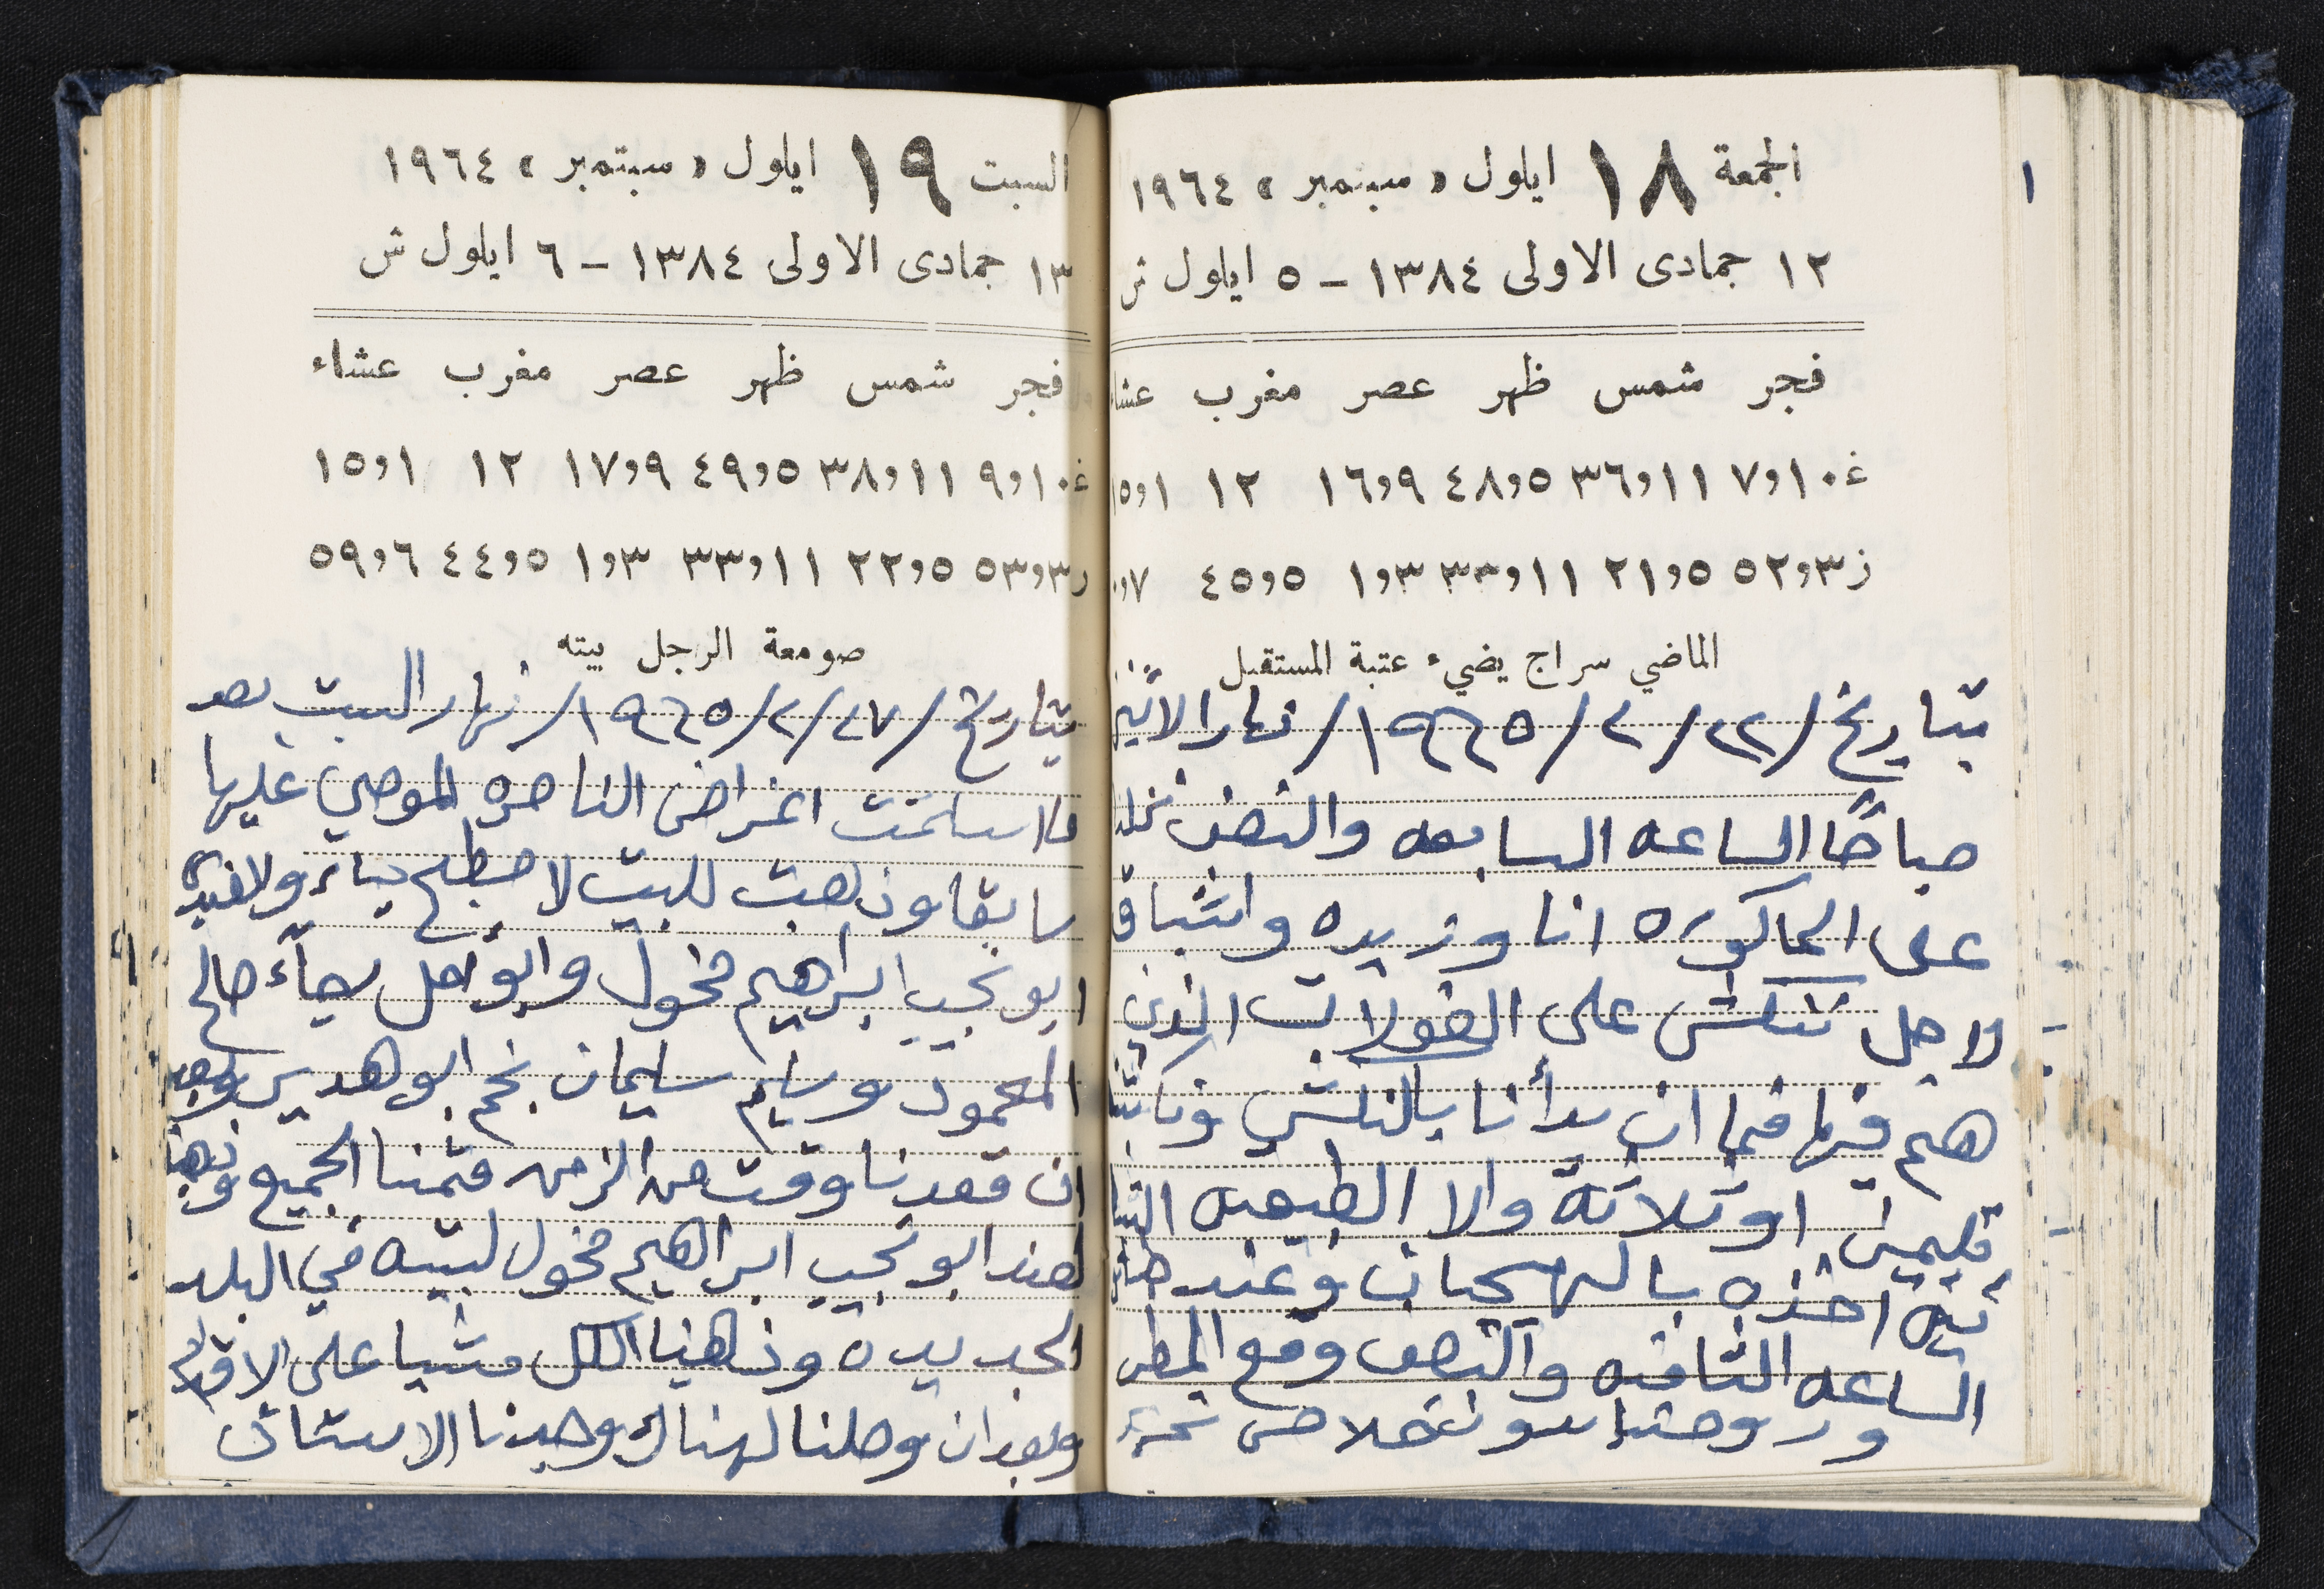 ١
الجمعة ١٨ ايلول « سبتمبر » ١٩٦٤
١٢ جمادى الاولى ١٣٨٤ - ٥ ايلول ش
فجر شمس ظهر عصر مغرب عشاء
غ ١٠و٧ ١١و٣٦ ٥و٤٨ ٩و١٦ ١٢ ١و١٥
ز ٣و٥٢ ٥و٢١ ١١و٣٣ ٣و١ ٥و٤٥ ٧و٠
الماضي سراج يضيء عتبة المستقبل
بتاريخ /٢٢/٢/١٩٦٥/ نهار الاثنين
صباحًا الساعه السابعه والنصف نزلنا
على الحاكوره انا وزيده واشباق
لاجل ننكش على الفولات الذين
هم فيها فما ان بدأنا بالنكش
تليمين او ثلاثة والا الطبيعه
اخذه بالهيجان وعند
الساعه الثامنه والنصف وقع المطر
وروحنا
السبت ١٩ ايلول « سبتمبر » ١٩٦٤
١٣ جمادى الاولى ١٣٨٤ - ٦ ايلول ش
فجر شمس ظهر عصر مغرب عشاء
غ ١٠و٩ ١١و٣٨ ٥و٤٩ ٩و١٧ ١٢ ١و١٥
ز ٣و٥٣ ٥و٢٢ ١١و٣٣ ٣و١ ٥و٤٤ ٦و٥٩
صومعة الرجل بيته
بتاريخ /٢٧/٢/١٩٦٥/ نهار السبت بعد
ما استلمت اغراض الناصره الموصي عليها
سابقا وذهبت للبيت
ابو نجيب ابراهيم مخول وابو امل رجاء صالح
المحمود وسليم سليمان نجم ابو هدير وبعد
ان قعدنا وقت من الزمن قمنا الجميع وذهبنا
لعند ابو نجيب ابراهيم مخول لبيته في البلد
الجديده وذهبنا الكل مشيا على الاقدام
وبعد ان وصلنا لهناك وجدنا الاستاذ